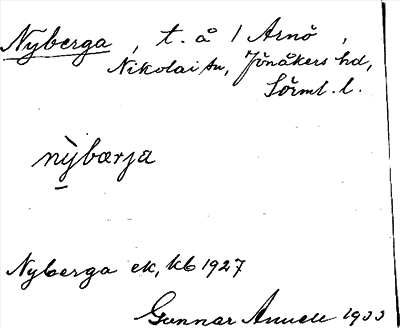 Nyberga, t. å 1 Arnö,
Nikolai sn, Jönåkers hd,
Sörml. l.
nỳbærja
Nyberga ek, kb 1927
Gunnar Annell 1933